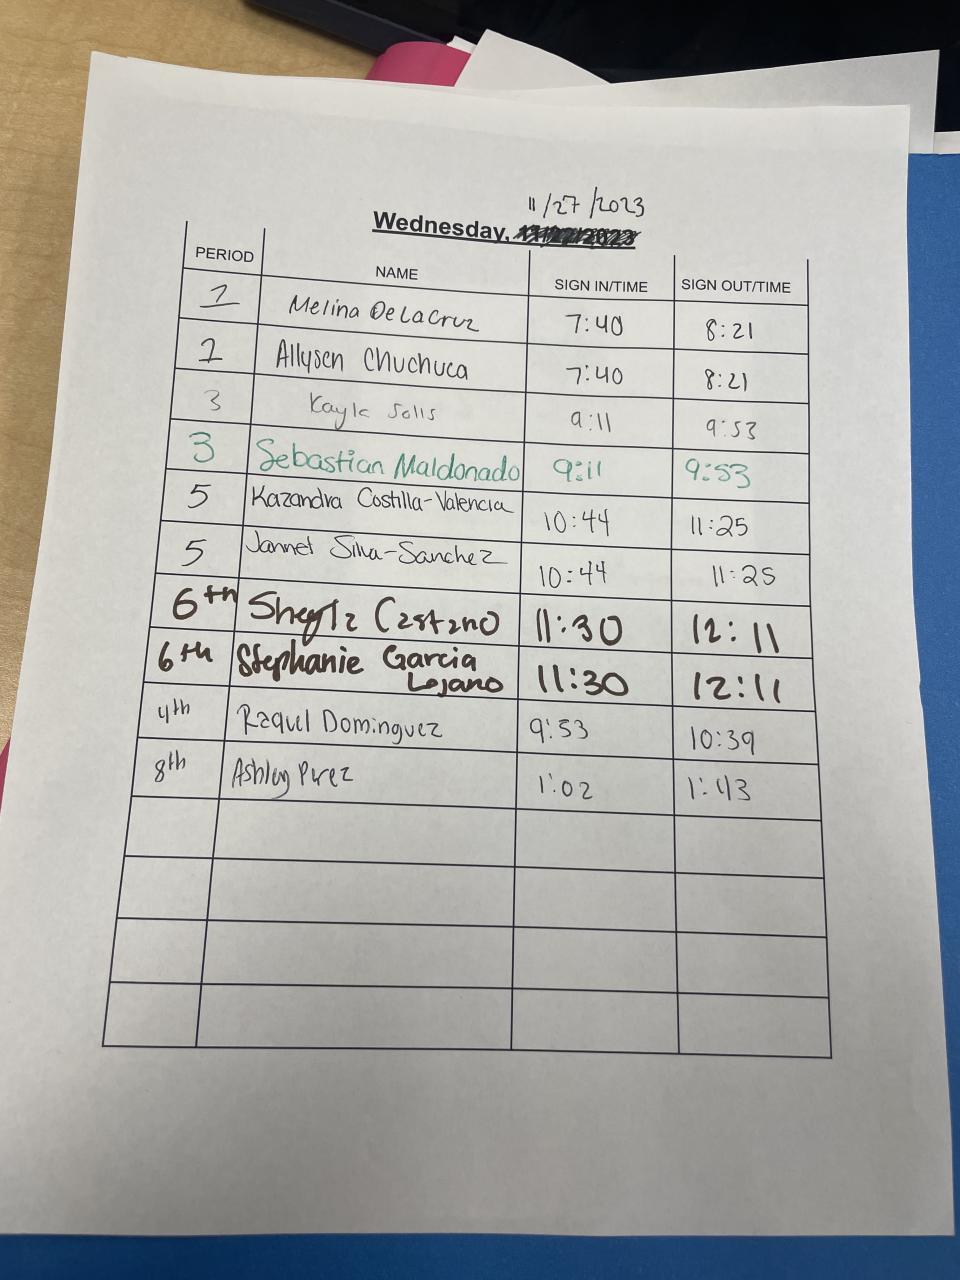 11/27/2023
Wednesday,
PERIOD NAME SIGN IN/TIME SIGN OUT/TIME
1 Melina DeLaCruz 7:40 8:21
1 Allyson Chuchuca 7:40 8:21
3 Kayla Solis 9:11 9:53
3 Sebastian Maldonado 9:11 9:53
5 Kazandra Costilla-Valencia 10:44 11:25
5 Jannet Silva-Sanchez 10:44 11:25
6th Sheyla Castano 11:30 12:11
6th Stephanie Garcia 11:30 12:11
Lojano
4th Raquel Dominguez 9:53 10:39
8th Ashley Perez 1:02 1:43